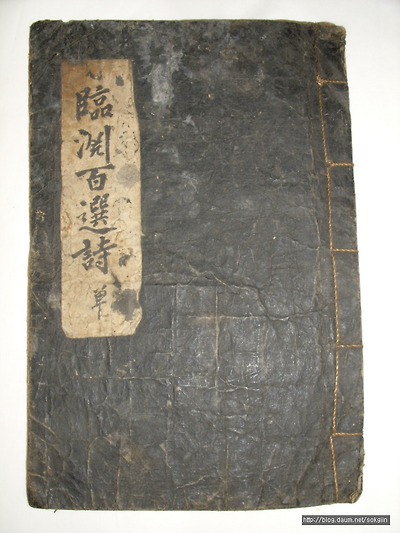 臨渕百選詩 單
http://blog.daum.net/sokgiin